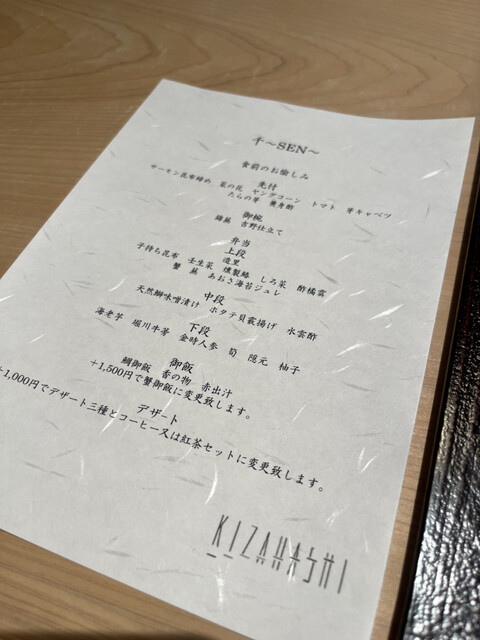 千～SEN～
食前のお愉しみ
先付
サーモン昆布締め 菜の花 ヤングコーン トマト 芽キャベツ
たらの芽 黄身酢
御椀
蹄鮪 吉野仕立て
弁当
上段
造里
子持ち昆布 壬生菜 燻製鮭 しろ菜 酢橘霙
蟹 蕪 あおさ海苔ジュレ
中段
天然鰤味噌漬け ホタテ貝霰揚げ 水雲酢
下段
海老芋 堀川牛蒡 金時人参 筍 隠元 柚子
御飯
鯛御飯 香の物 赤出汁
+1,500円で蟹御飯に変更致します。
デザート
+1,000円でデザート三種とコーヒー又は紅茶セットに変更致します。
KIZAHASHI